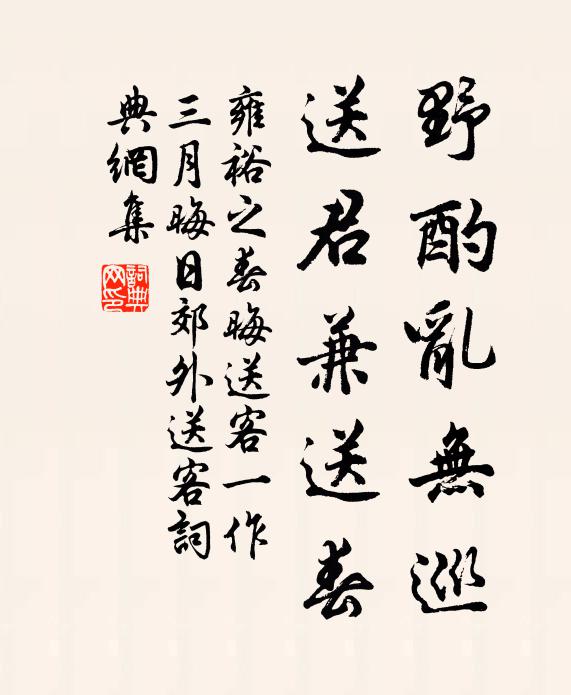 野酌亂無巡
送君兼送春
雍裕之春晦送客一作
三月晦日郊外送客詞
典網集
詞典
网印